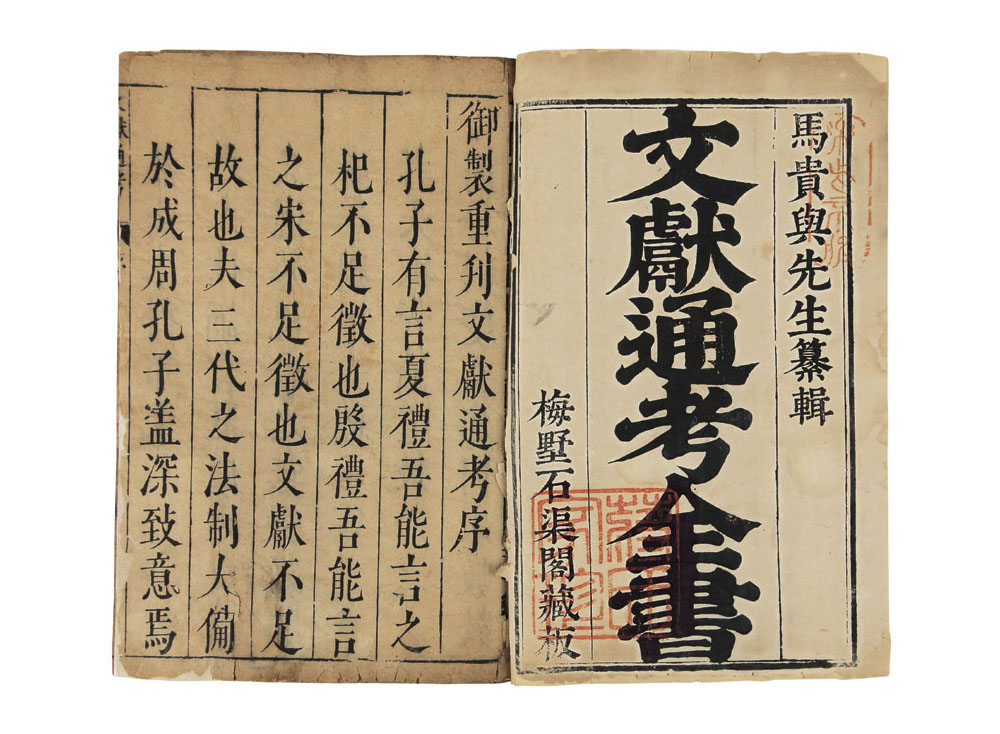 馬貴與先生纂輯
文獻通考全書
梅墅石渠閣藏板
御製重刋文獻通考序
孔子有言夏禮吾能言之
杞不足徵也殷禮吾能言
之宋不足徵也文獻不足
故也夫三代之法制大備
於成周孔子盖深致意焉